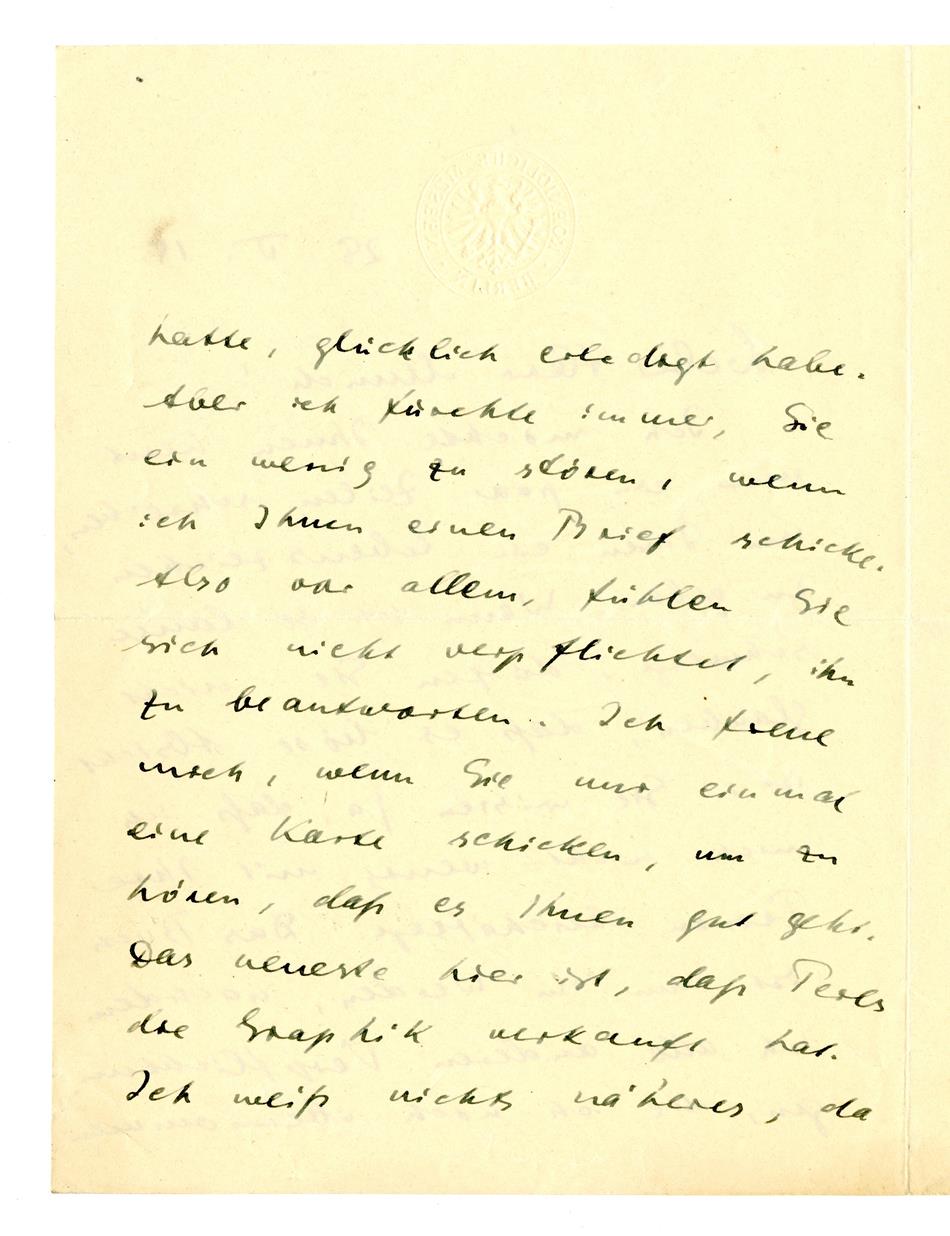 hatte, glücklich erledigt habe.
Aber ich fürchte immer, Sie
ein wenig zu stören, wenn
ich Ihnen einen Brief schicke.
Also vor allem, fühlen Sie
sich nicht verpflichtet, ihn
zu beantworten. Ich freue
mich, wenn Sie nur einmal
eine Karte schicken, um zu
hören, daß es Ihnen gut geht.
Das neueste hier ist, daß Perls
die Graphik verkauft hat.
Ich weiß nichts näheres, da